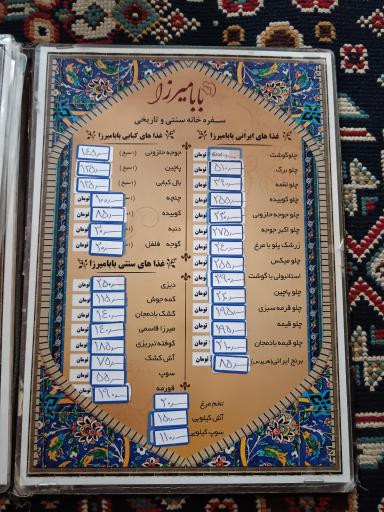 بابا میرزا
سفره خانه سنتی و تاریخی
غذا های ایرانی بابامیرزا
چلوگوشت تومان
چلو برگ ۵۱۰ تومان
چلو لقمه تومان
چلو کوبیده ۲۵۵ تومان
چلو جوجه حلزونی ۲۳۰ تومان
چلو اکبر جوجه ۲۷۵ تومان
زرشک پلو با مرغ تومان
چلو میکس تومان
استانبولی با گوشت تومان
چلو پاچین تومان
چلو قرمه سبزی ۱۹۵ تومان
چلو قیمه ۱۹۵ تومان
چلو قیمه بادمجان ۲۱۰ تومان
برنج ایرانی ۸۵ تومان
غذا های کبابی بابامیرزا
جوجه حلزونی (۱ سیخ) ۱۴۵
پاچین (۱ سیخ) ۱۲۵
بال کبابی (۱ سیخ) ۱۲۵
چنجه (۱ سیخ) تومان
کوبیده (۱ سیخ) ۸۵ تومان
دنبه (۱ سیخ) ۳۰ تومان
گوجه فلفل (۱ سیخ) ۲۰ تومان
غذا های سنتی بابامیرزا
دیزی ۲۵۰ تومان
کمه جوش ۱۱۵ تومان
کشک بادمجان ۱۴۰ تومان
میرزا قاسمی ۱۴۰ تومان
کوفته تبریزی ۱۸۵ تومان
آش کشک ۷۵ تومان
سوپ ۵۵ تومان
قورمه ۱۹۰
تخم مرغ ۲۰
آش کیلویی ۱۵۰
سوپ کیلویی ۱۱۰